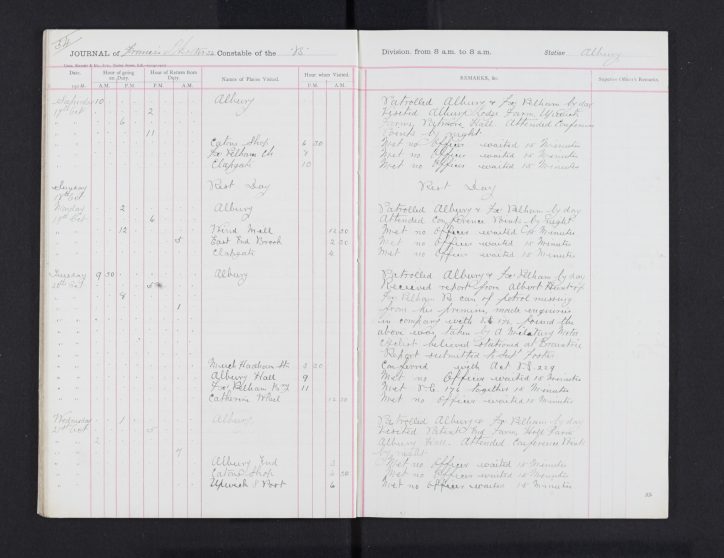 JOURNAL of Constable of the "B" Division. from 8 a.m. to 8 a.m. Station Albury
Date. Hour of going on Duty. Hour of Return from Duty. Names of Places Visited. Hour when Visited. REMARKS, &c. Superior Officer's Remarks.
A.M. P.M. P.M. A.M. P.M. A.M.
Saturday 10 Albury Patrolled Albury & Fx Pelham by day
17th Oct 2 Visited Albury Lodge Farm, Upwick
6 Hall Attended Conference
11 Points by night
Eatons Shop 6 30 Met no Officer waited 15 Minutes
Fx Pelham Ch 8 Met no Officer waited 15 Minutes
Clapgate 10 Met no Officer waited 15 Minutes
Sunday Rest Day Rest Day
18th Oct
Monday 2 Albury Patrolled Albury & Fx Pelham by day
19th Oct 6 Attended Conference Points by Night
12 Wind Mill 12 30 Met no Officer waited 15 Minutes
5 East End Brook 2 30 Met no Officer waited 15 Minutes
Clapgate 4 Met no Officer waited 15 Minutes
Tuesday 9 30 Albury Patrolled Albury & Fx Pelham by day
20th Oct 5 Received report from Albert
8 Fx Pelham Re can of petrol missing
1 from his premises, made enquiries
in company with found the
above was taken by a Military Motor
Cyclist believed stationed at
Report submitted to Supt Foster
Much Hadham St 8 30 Conferred with Act P.S. 229
Albury Hall 9 Met no Officer waited 15 Minutes
Fx Pelham 11 Met P.C. 176 together 15 Minutes
Catherine Wheel 12 30 Met no Officer waited 15 Minutes
Wednesday 1 Albury Patrolled Albury & Fx Pelham by day
21st Oct 5 Visited Patient End Farm, Hole Farm
Albury Hall. Attended Conference Points
by night
Albury End Met no Officer waited 15 Minutes
Eatons Shop 30 Met no Officer waited 15 Minutes
Upwick S Post 6 Met no Officer waited 15 Minutes